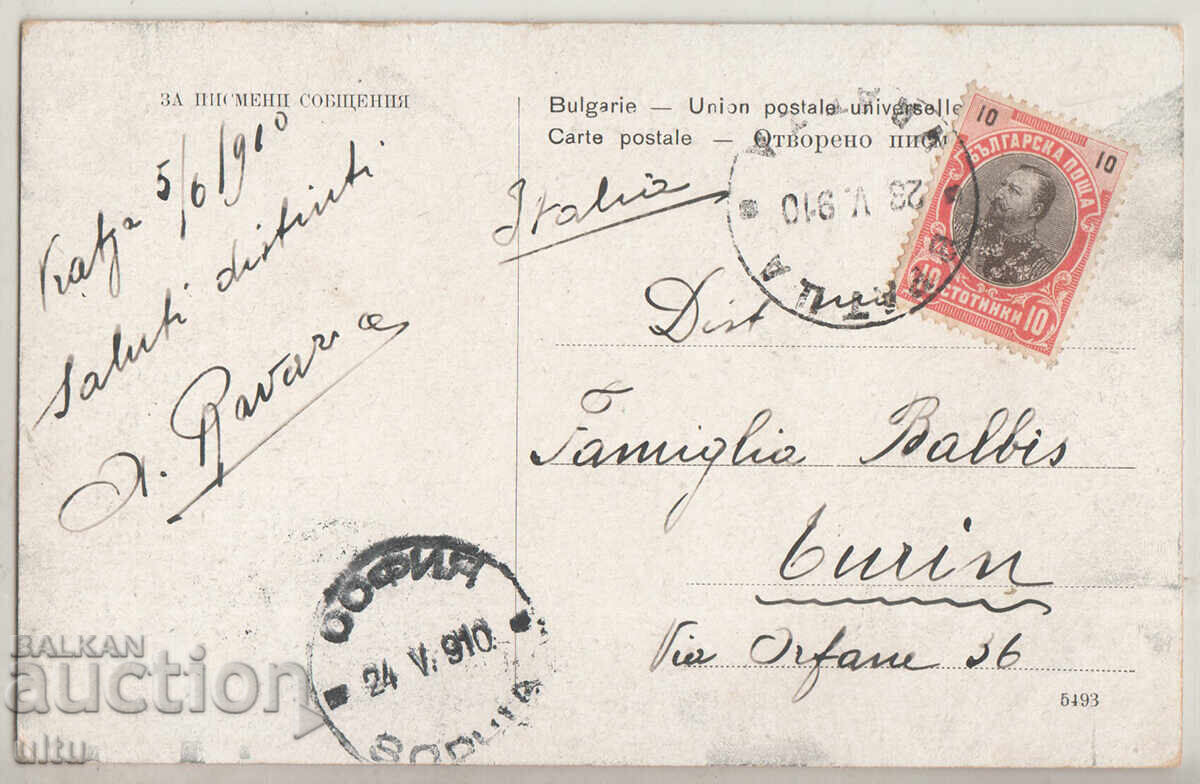 ЗА ПИСМЕНИ СОБЩЕНИЯ
5/6/910
Saluti distinti
Bulgarie — Union postale universelle
Carte postale — Отворено писм
Italia
23 V. 910
10 10
БЪЛГАРСКА ПОЩА
10 СТОТИНКИ 10
Dist
Famiglia Balbis
Turin
Via Orfane 36
СОФИЯ
24 V. 910.
SOPHIA
5493
BALKAN
auction
ultu